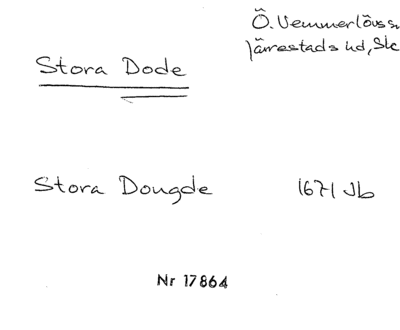 Ö. Vemmerlövs sn
Järrestads hd, Sk
Stora Dode
Stora Dougde 1671 Jb
Nr 17864